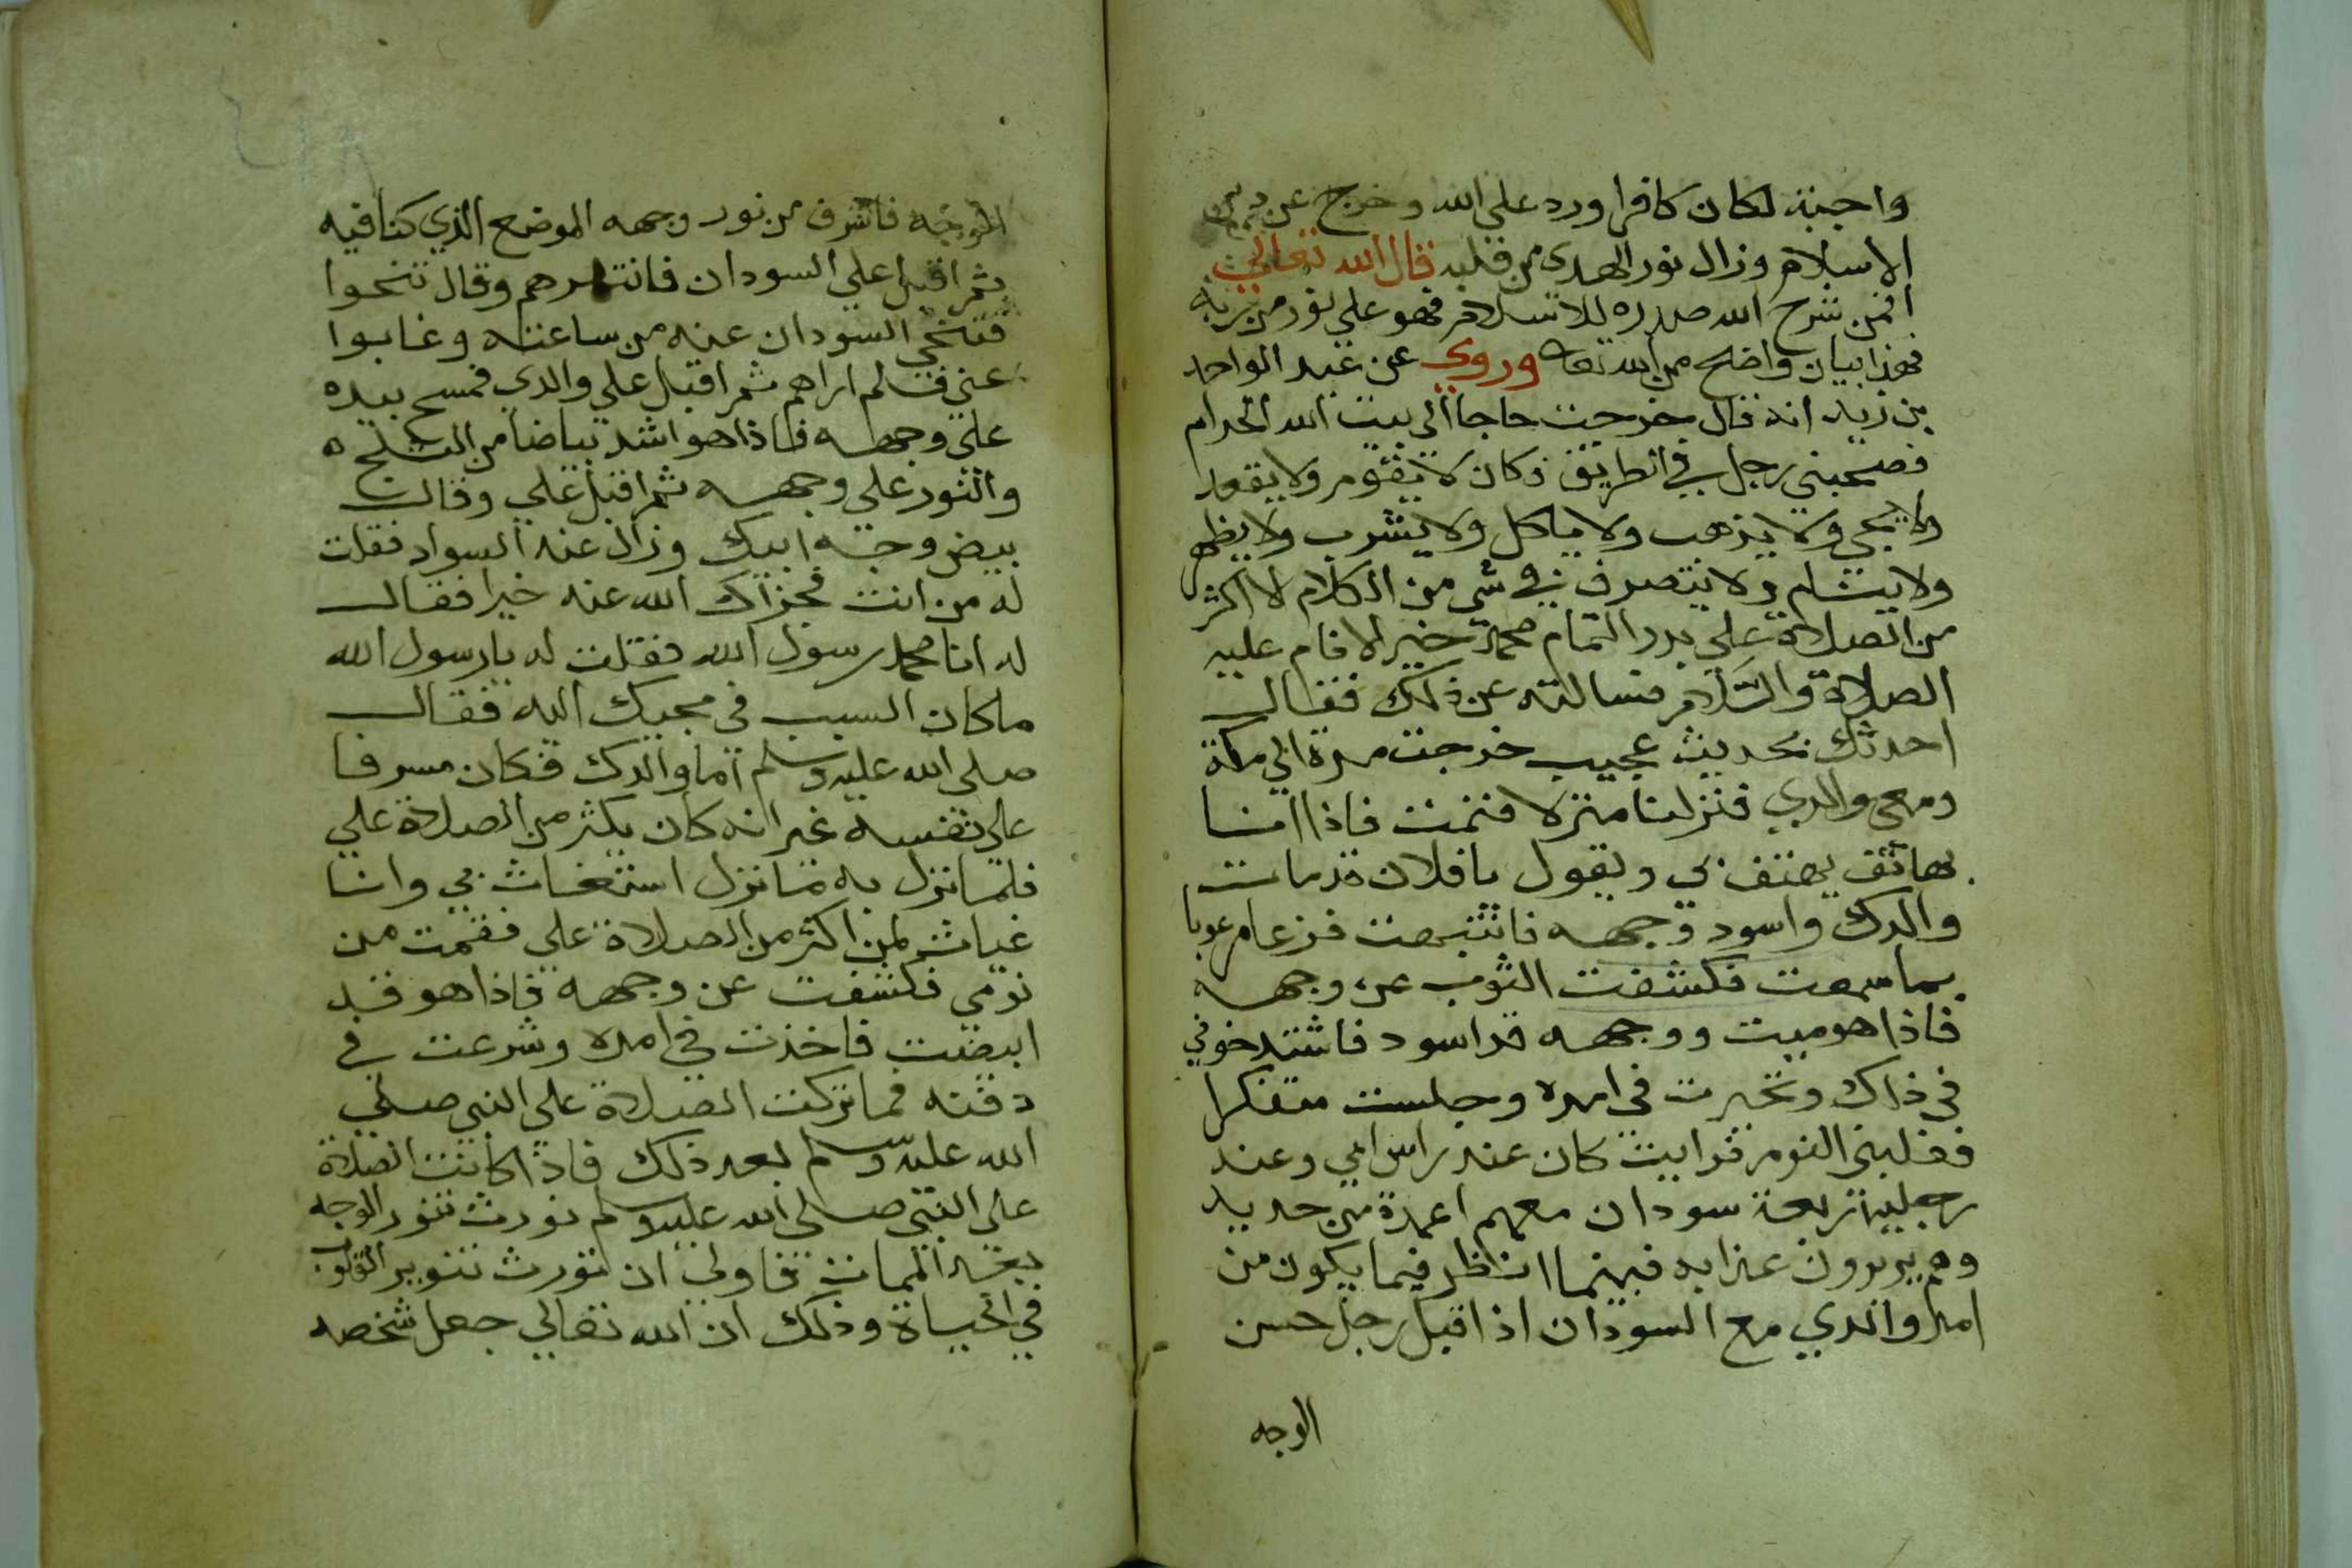 واجبة لكان كافرا ورد على الله وخرج عن دين
الاسلام وزال نور الهدى من قلبه قال الله تعالى
افمن شرح الله صدره للاسلام فهو على نور من ربه
فهذا بيان واضح من الله تعا وروي عن عبد الواحد
بن زيد انه قال خرجت حاجا الى بيت الله الحرام
فصحبني رجل في الطريق فكان لا يقوم ولا يقعد
ولا يجي ولا يذهب ولا ياكل ولا يشرب ولا
ولا ولا يتصرف في شي من الكلام لا اكثر
من الصلاة على بدر التمام محمد خير الانام عليه
الصلاة والسلام فسالته عن ذلك فقال
احدثك بحديث عجيب خرجت مرة الى مكة
ومعي والدي فنزلنا منزلا فنمت فاذا انا
بهاتف يهتف بي ويقول يا فلان قد مات
والدك واسود وجهه فانتبهت فزعا مرعوبا
بما سمعت فكشفت الثوب عن وجهه
فاذا هو ميت ووجهه قد اسود فاشتد خوفي
في ذاك وتحيرت في امره وجلست متفكرا
فغلبني النوم فرايت كان عند راس ابي وعند
رجليه اربعة سودان معهم اعمدة من حديد
وهم يريدون عذابه فبينما انا انظر فيما يكون من
امر والدي مع السودان اذ اقبل رجل حسن
الوجه
الوجه فاشرف من نور وجهه الموضع الذي كنا فيه
ثم اقبل على السودان فانتهرهم وقال تنحوا
فتنحي السودان عنه من ساعته وغابوا
عني فلم اراهم ثم اقبل على والدي فمسح بيده
على وجهه فاذا هو اشد بياضا من الثلج ه
والنور على وجهه ثم اقبل علي وقال
بيض وجه ابيك وزال عنه السواد فقلت
له من انت فجزاك الله عنه خيرا فقال
له انا محمد رسول الله فقلت له يا رسول الله
ما كان السبب في مجيك اليه فقال
صلى الله عليه وسلم اما والدك فكان مسرفا
على نفسه غير انه كان يكثر من الصلاة علي
فلما نزل به ما نزل استغاث بي وانا
غياث لمن اكثر من الصلاة علي فقمت من
نومي فكشفت عن وجهه فاذا هو قد
ابيضت فاخذت في امره وشرعت في
دفنه فما تركت الصلاة على النبي صلى
الله عليه وسلم بعد ذلك فاذا كانت الصلاة
على النبي صلى الله عليه وسلم تورث تنور الوجه
بعد الممات فاولى ان تورث تنوير القلوب
في الحياة وذلك ان الله تعالى جعل شخصه